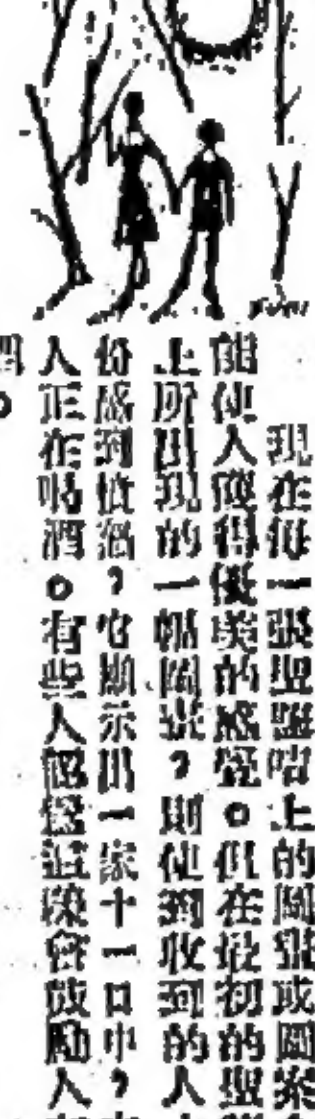 現在每一張聖誕咭上的圖畫或圖案
能使人獲得優美的感覺。但在最初的聖
上所出現的一幅圖畫,則使到收到的人
份感到憤怒,它顯示出一家十一口中,
人正在喝酒。有些人認為這樣會鼓勵人